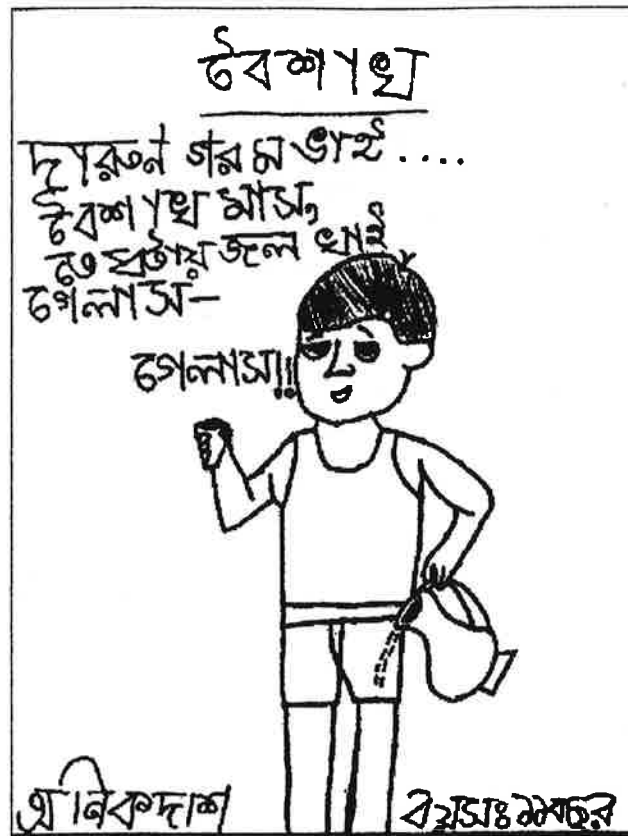 বৈশাখ
দারুন গরম ভাই ....
বৈশাখ মাস,
তেষ্টায় জল খাই
গেলাস-
গেলাস!!
অনিক দাশ
বয়সঃ ১১ বছর